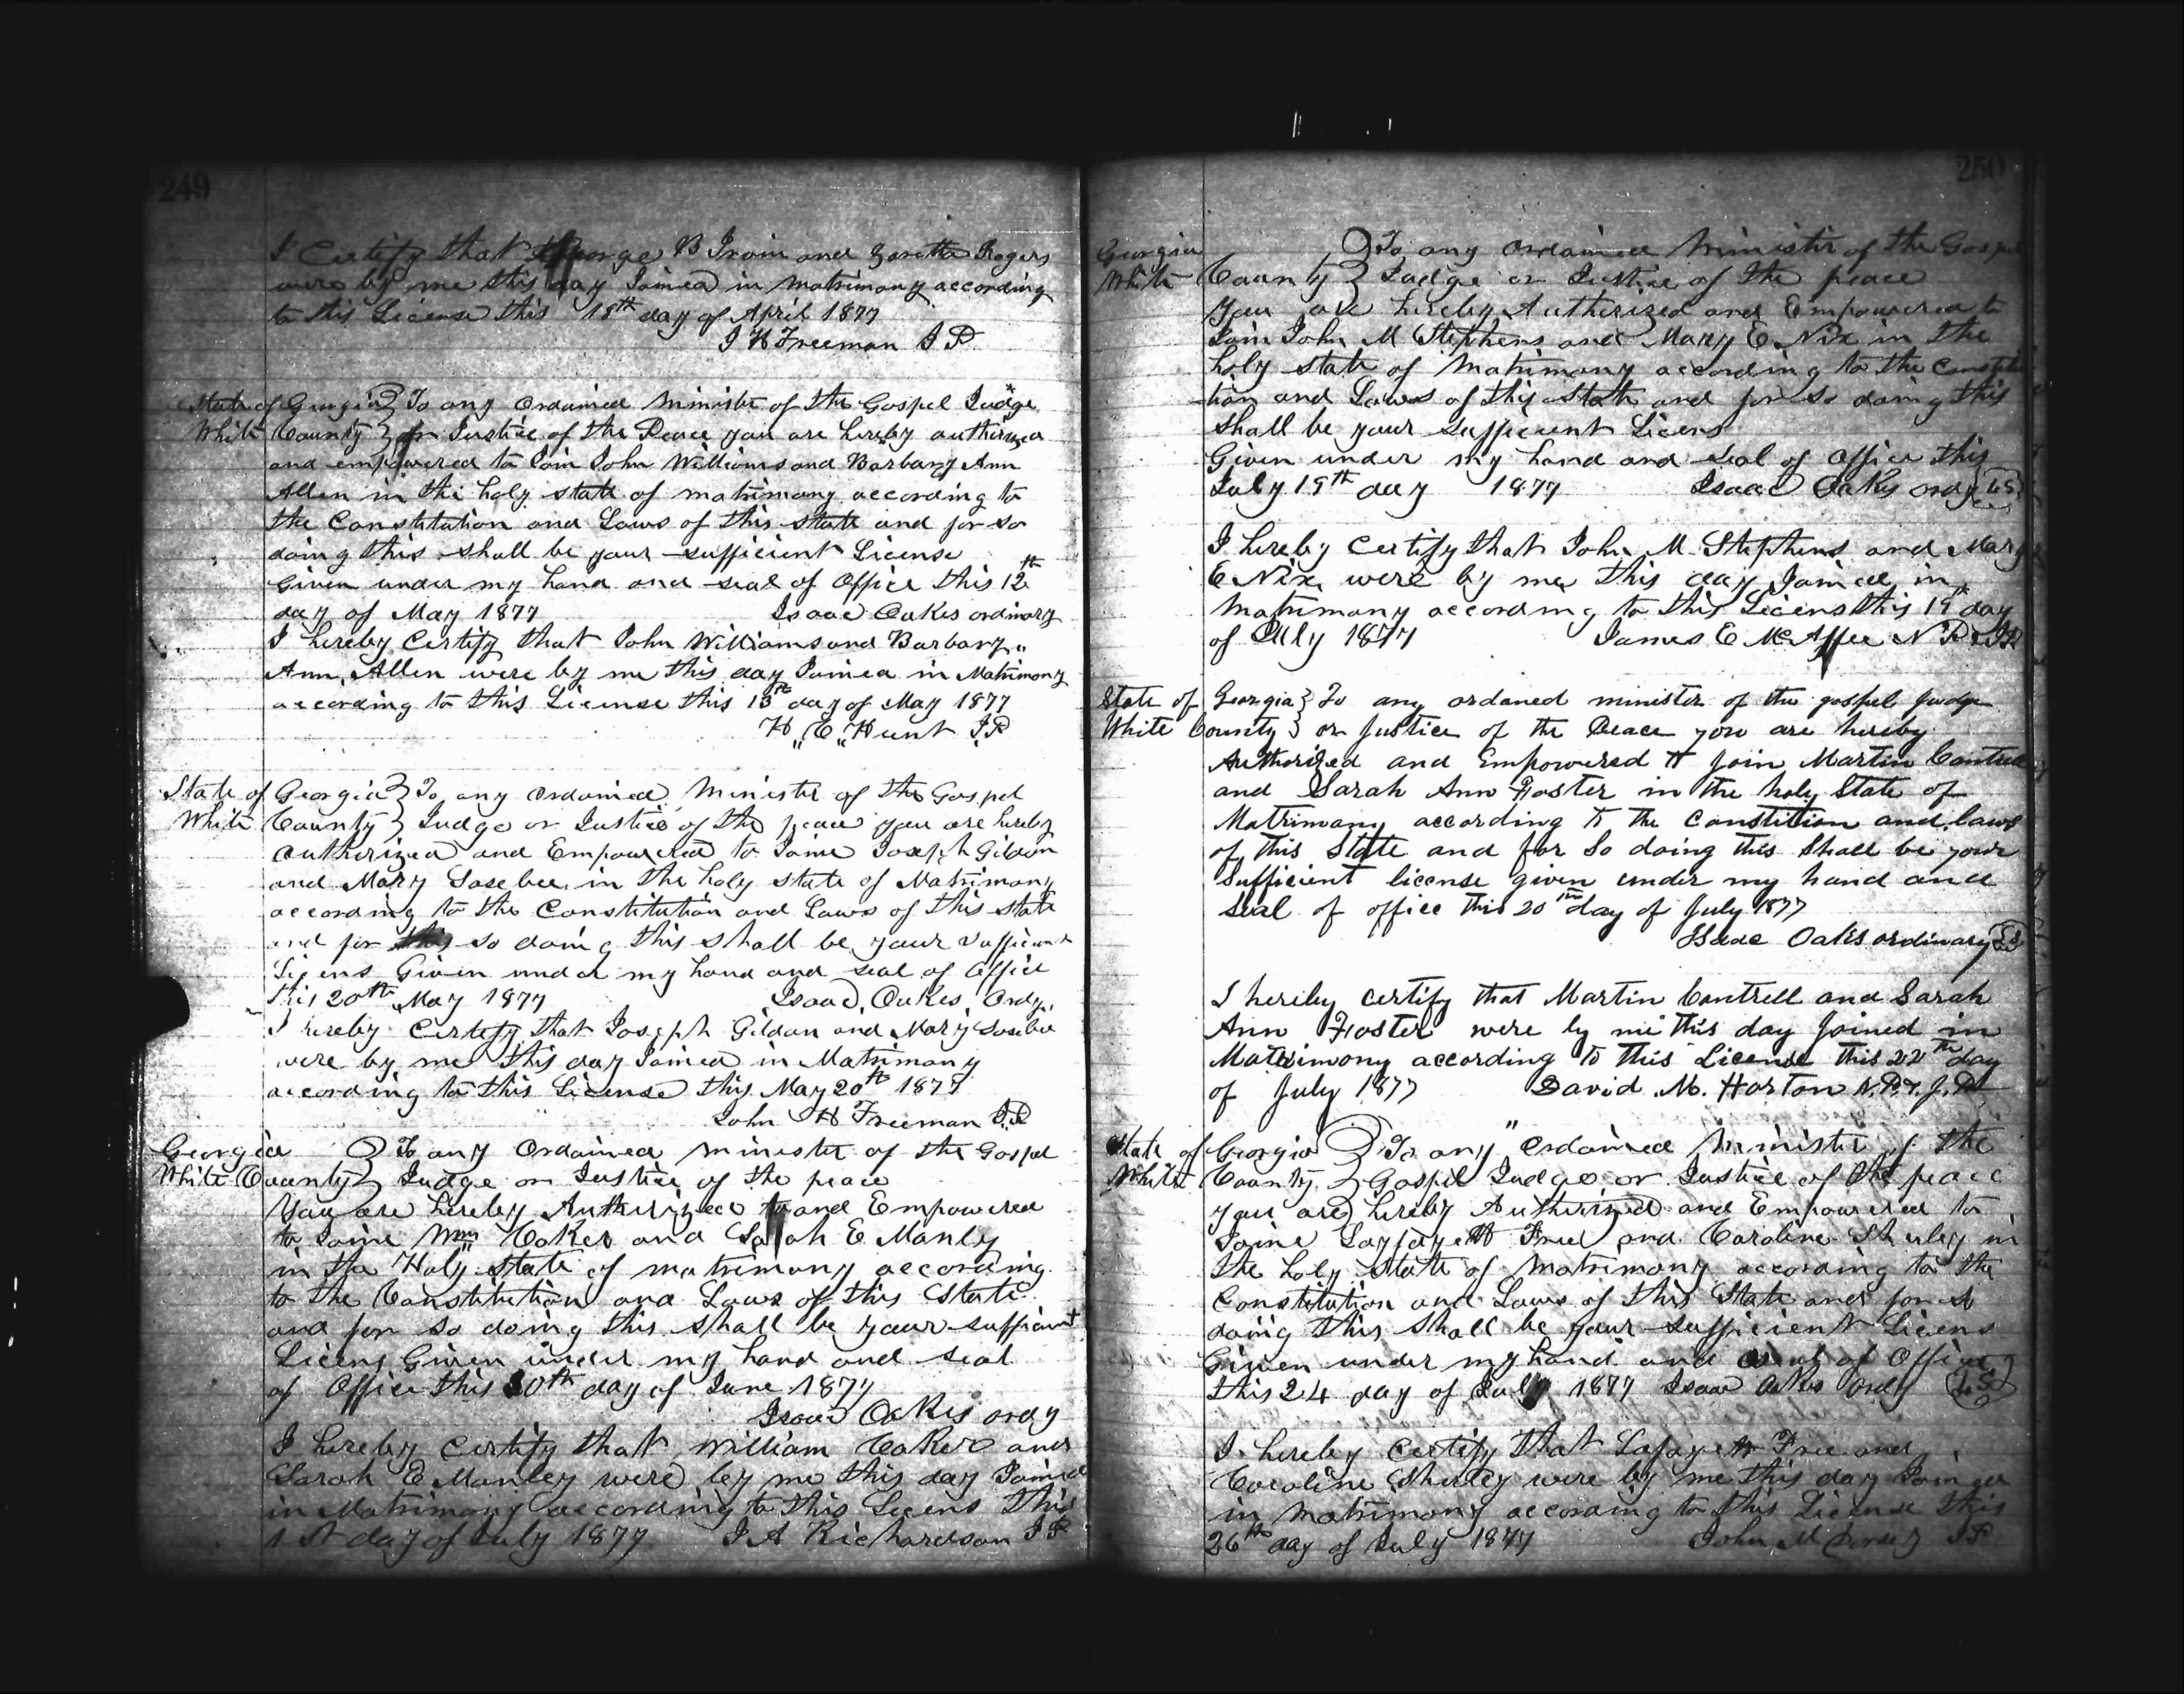 249
I Certify that George B Irvin and Zoretta Rogers
were by me this day Joined in matrimony according
to this License this 18th day of April 1877
J H Freeman J.P.
State of Georgia } To any Ordained Minister of the Gospel Judge
White County } or Justice of the Peace you are hereby authorized
and empowered to Join John Williams and Barbary Ann
Allen in the holy state of matrimony according to
the Constitution and Laws of this state and for so
doing this shall be your sufficient License
Given under my hand and seal of Office this 12th
day of May 1877 Isaac Oakes ordinary
I hereby Certify that John Williams and Barbary "
Ann, Allen were by me this day Joined in Matrimony
according to this License this 13th day of May 1877
H "E" Hunt J.P
State of Georgia } To any Ordained, Minister of the Gospel
White County } Judge or Justice of the peace you are hereby
Authorized and Empowered to Joine Joseph Gildon
and Mary Sosebee in the holy state of Matrimony
according to the Constitution and Laws of this state
and for so doing this shall be your sufficient
Licens Given under my hand and seal of Office
this 20th May 1877 Isaac Oakes Ordy.
I hereby Certify that Joseph Gildon and Mary Sosebee
were by me this day Joined in Matrimony
according to this License this May 20th 1877
John H Freeman J.P.
Georgia } To any Ordained minister of the Gospel
White County } Judge or Justice of the peace
You are hereby Authorized and Empowered
to Joine Wm Coker and Sarah E Manly
in the Holy state of matrimony according
to the Constitution and Laws of this State
and for so doing this shall be your sufficient
Licens Given under my hand and seal
of Office this 30th day of June 1877
Isaac Oakes ordy
I hereby certify that William Coker and
Sarah E Manley were by me this day Joined
in Matrimony according to this Licens this
1st day of July 1877. J A Richardson J P
250
Georgia } To any Ordained Minister of the Gospel
White County } Judge or Justice of the peace
You are hereby Authorized and Empowered to
Join John M Stephens and Mary E Nix in the
holy state of Matrimony according to the Constitu
tion and Laws of this state and for so doing this
shall be your sufficient Licens
Given under my hand and seal of Office this
July 19th day 1877 Isaac Oakes ordy LS
I hereby Certify that John M Stephens and Mary
E Nix were by me this day Joined in
Matrimony according to this Licens this 19th day
of July 1877 James E McAffee N P & JP
State of Georgia } To any ordaned minister of the gospel Judge
White County } or Justice of the Peace you are hereby
Authorized and Empowered to join Martin Cantrell
and Sarah Ann Foster in the holy State of
Matrimony according to the Constitution and laws
of this State and for so doing this Shall be your
Sufficient license given under my hand and
Seal of office this 20th day of July 1877
Isaac Oakes ordinary LS
I hereby certify that Martin Cantrell and Sarah
Ann Foster were by me this day Joined in
Matrimony according to this License this 22th day
of July 1877 David M. Horton N.P.&. J.P.
State of Georgia } To any " Ordained Minister of the
White County } Gospel Judge or Justice of the peace
you are hereby Authorized and Empowered to
Joine Layfayett Free and Caroline Shirley in
the holy state of Matrimony according to the
Constitution and Laws of this State and for so
doing this Shall be your sufficient Licens
Given under my hand and seal of Office
this 24 day of July 1877 Isaac Oakes Ordy L S
I hereby Certify that Lafayett Free and
Caroline Shirley were by me this day Joined
in Matrimony according to this License this
26th day of July 1877 John M Dorsey J P